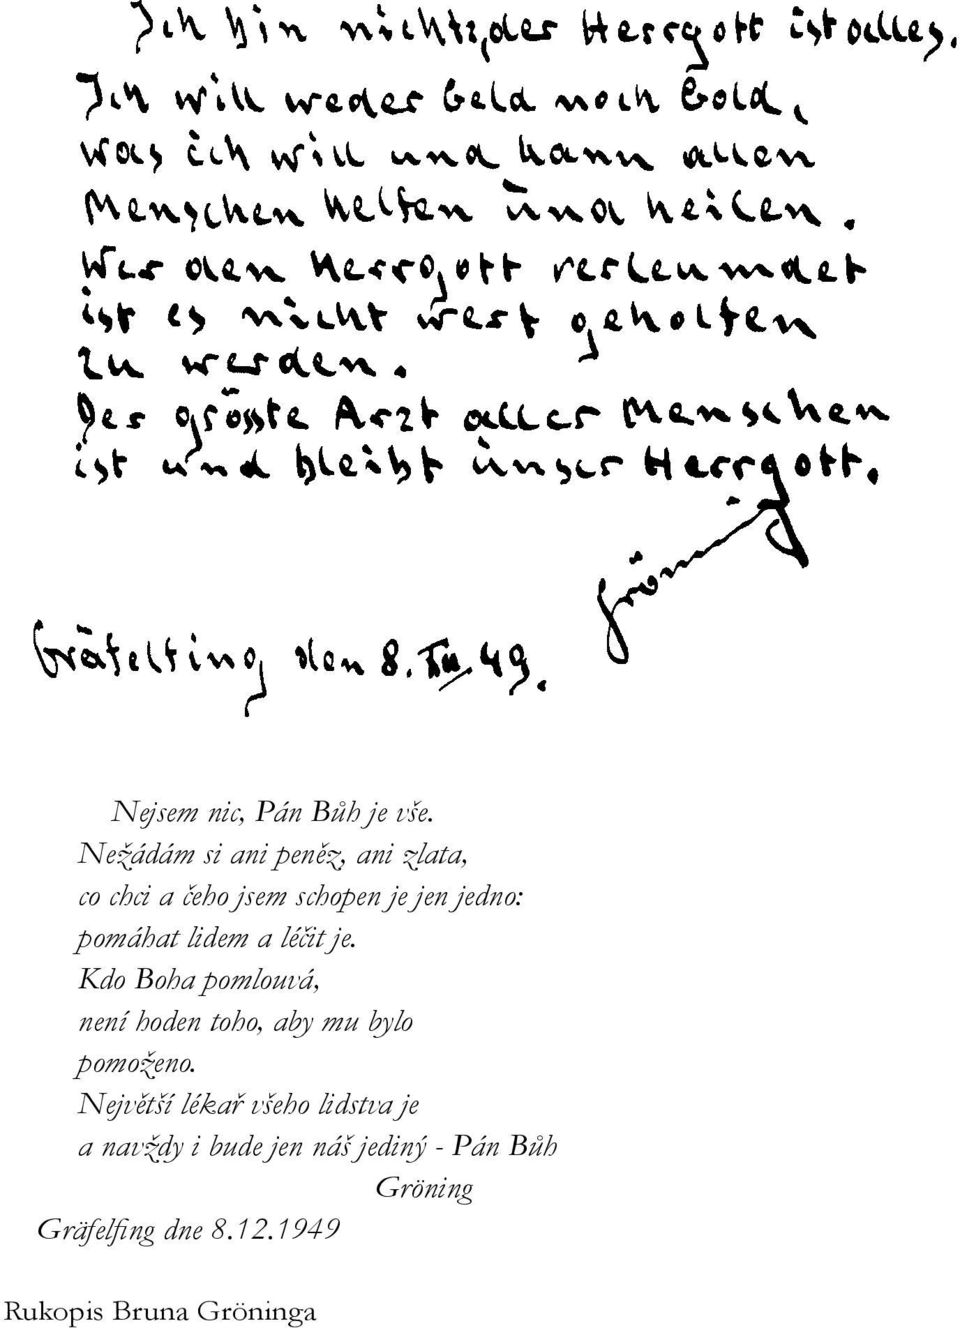 Ich bin nichts, der Herrgott ist alles.
Ich will weder Geld noch Gold,
was ich will und kann allen
Menschen helfen und heilen.
Wer den Herrgott verleumdet
ist es nicht wert geholfen
zu werden.
Der grösste Arzt aller Menschen
ist und bleibt unser Herrgott.
Gröning
Gräfelfing den 8. XII. 49.
Nejsem nic, Pán Bůh je vše.
Nežádám si ani peněz, ani zlata,
co chci a čeho jsem schopen je jen jedno:
pomáhat lidem a léčit je.
Kdo Boha pomlouvá,
není hoden toho, aby mu bylo
pomoženo.
Největší lékař všeho lidstva je
a navždy i bude jen náš jediný - Pán Bůh
Gröning
Gräfelfing dne 8.12.1949
Rukopis Bruna Gröninga